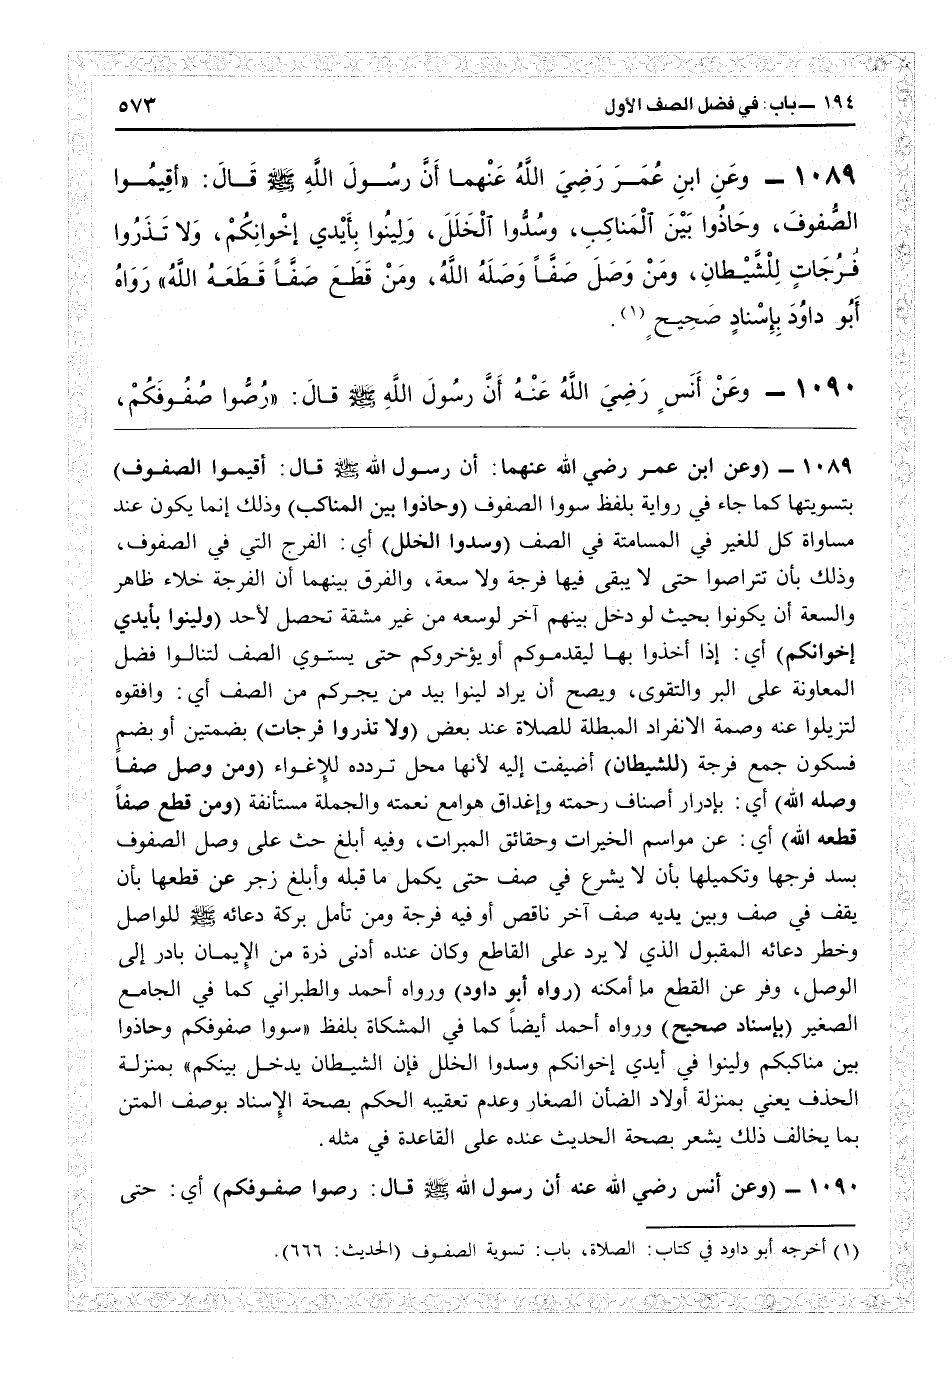 ١٩٤ ـ باب: في فضل الصف الأول ٥٧٣
١٠٨٩ ـ وعَنِ ابنِ عُمَـرَ رَضِيَ اللَّهُ عَنْهُما أَنَّ رسُـولَ اللَّهِ ﷺ قَـالَ: «أقِيمُـوا
الصُّفوفَ، وحَاذُوا بَيْنَ ٱلْمَناكِبِ، وسُدُّوا ٱلْخَلَلَ، وَلِينُوا بِأَيْدي إخْوانِكُمْ، وَلا تَـذَرُوا
فُـرُجَاتٍ لِلْشَّيْـطانِ، ومَنْ وَصَلَ صَفَّاً وَصَلَهُ اللَّهُ، ومَنْ قَطَعَ صَفَّاً قَـطَعَـهُ اللَّهُ» رَوَاهُ
أَبُو داوُدَ بِإِسْنادٍ صَحِيـحٍ (١).
١٠٩٠ ـ وعَنْ أَنَسٍ رَضِيَ اللَّهُ عَنْـهُ أَنَّ رسُولَ اللَّهِ ﷺ قالَ: «رُصُّوا صُفُـوفَكُمْ،
١٠٨٩ ـ (وعن ابن عمـر رضي الله عنهما: أن رسـول الله ﷺ قـال: أقيمـوا الصفـوف)
بتسويتها كما جاء في رواية بلفظ سووا الصفوف (وحاذوا بين المناكب) وذلك إنما يكون عند
مساواة كل للغير في المسامتة في الصف (وسدوا الخلل) أي: الفرج التي في الصفوف،
وذلك بأن تتراصوا حتى لا يبقى فيها فرجة ولا سعة، والفرق بينهما أن الفرجة خلاء ظاهر
والسعة أن يكونوا بحيث لو دخل بينهم آخر لوسعه من غير مشقة تحصل لأحد (ولينوا بأيدي
إخوانكم) أي: إذا أخذوا بهـا ليقدمـوكم أو يؤخروكم حتى يستـوي الصف لتنالـوا فضل
المعاونة على البر والتقوى، ويصح أن يراد لينوا بيد من يجـركم من الصف أي: وافقوه
لتزيلوا عنه وصمة الانفراد المبطلة للصلاة عند بعض (ولا تذروا فرجات) بضمتين أو بضم
فسكون جمع فرجة (للشيطان) أضيفت إليه لأنها محل تـردده للإغـواء (ومن وصل صفـاً
وصله الله) أي: بإدرار أصناف رحمته وإغداق هوامع نعمته والجملة مستأنفة (ومن قطع صفاً
قطعه الله) أي: عن مواسم الخيرات وحقائق المبرات، وفيه أبلغ حث على وصل الصفوف
بسد فرجها وتكميلها بأن لا يشرع في صف حتى يكمل ما قبله وأبلغ زجر عن قطعها بأن
يقف في صف وبين يديه صف آخر ناقص أو فيه فرجة ومن تأمل بركة دعائه ﷺ للواصل
وخطر دعائه المقبول الذي لا يرد على القاطع وكان عنده أدنى ذرة من الإيمـان بادر إلى
الوصل، وفر عن القطع ما أمكنه (رواه أبو داود) ورواه أحمد والطبراني كما في الجامع
الصغير (بإسناد صحيح) ورواه أحمد أيضاً كما في المشكاة بلفظ «سووا صفوفكم وحاذوا
بين مناكبكم ولينوا في أيدي إخوانكم وسدوا الخلل فإن الشيـطان يدخـل بينكم» بمنزلـة
الحذف يعني بمنزلة أولاد الضأن الصغار وعدم تعقيبه الحكم بصحة الإسناد بوصف المتن
بما يخالف ذلك يشعر بصحة الحديث عنده على القاعدة في مثله.
١٠٩٠ ـ (وعن أنس رضي الله عنه أن رسول الله ﷺ قـال: رصوا صفـوفكم) أي: حتى
(١) أخرجه أبو داود في كتاب: الصلاة، باب: تسوية الصفـوف (الحديث: ٦٦٦).